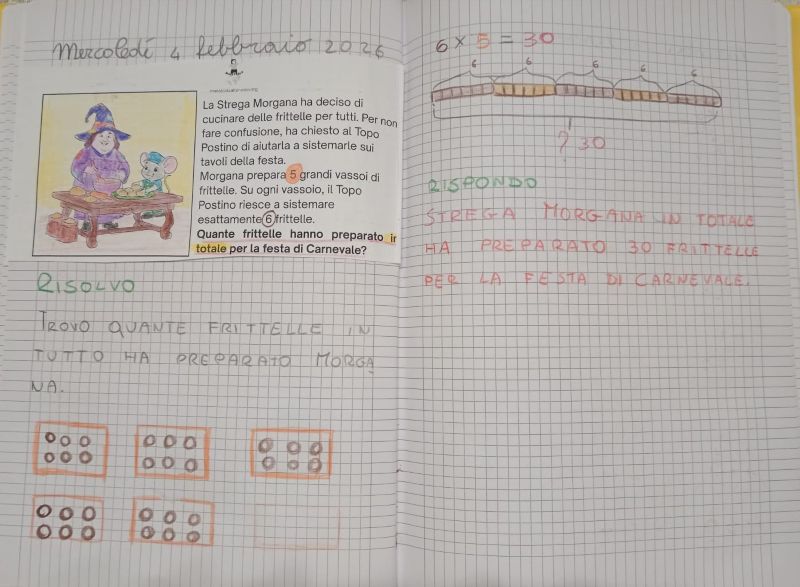 Mercoledì 4 febbraio 2026
La Strega Morgana ha deciso di
cucinare delle frittelle per tutti. Per non
fare confusione, ha chiesto al Topo
Postino di aiutarla a sistemarle sui
tavoli della festa.
Morgana prepara 5 grandi vassoi di
frittelle. Su ogni vassoio, il Topo
Postino riesce a sistemare
esattamente 6 frittelle.
Quante frittelle hanno preparato in
totale per la festa di Carnevale?
RISOLVO
TROVO QUANTE FRITTELLE IN
TUTTO HA PREPARATO MORGA
NA.
6 × 5 = 30
6 6 6 6 6
? 30
RISPONDO
STREGA MORGANA IN TOTALE
HA PREPARATO 30 FRITTELLE
PER LA FESTA DI CARNEVALE.